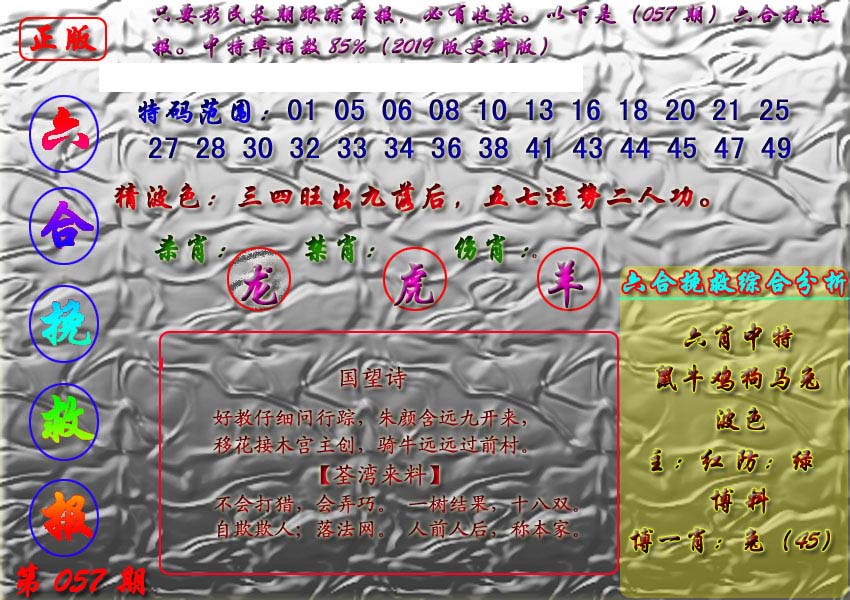 正版
只要彩民长期跟踪本报，必有收获。以下是（057期）六合挽救
报。中特率指数85%（2019版更新版）
六
合
挽
救
报
第057期
特码范围：01 05 06 08 10 13 16 18 20 21 25
27 28 30 32 33 34 36 38 41 43 44 45 47 49
猜波色：三四旺出九落后，五七运势二人功。
杀肖：龙 禁肖：虎 伤肖：。羊
国望诗
好教仔细问行踪，朱颜含远九开来，
移花接木宫主创，骑牛远远过前村。
【荃湾来料】
不会打猎，会弄巧。 一树结果，十八双。
自欺欺人；落法网。 人前人后，称本家。
六合挽救综合分析
六肖中特
鼠牛鸡狗马兔
波色
主：红防：绿
博料
博一肖：兔（45）